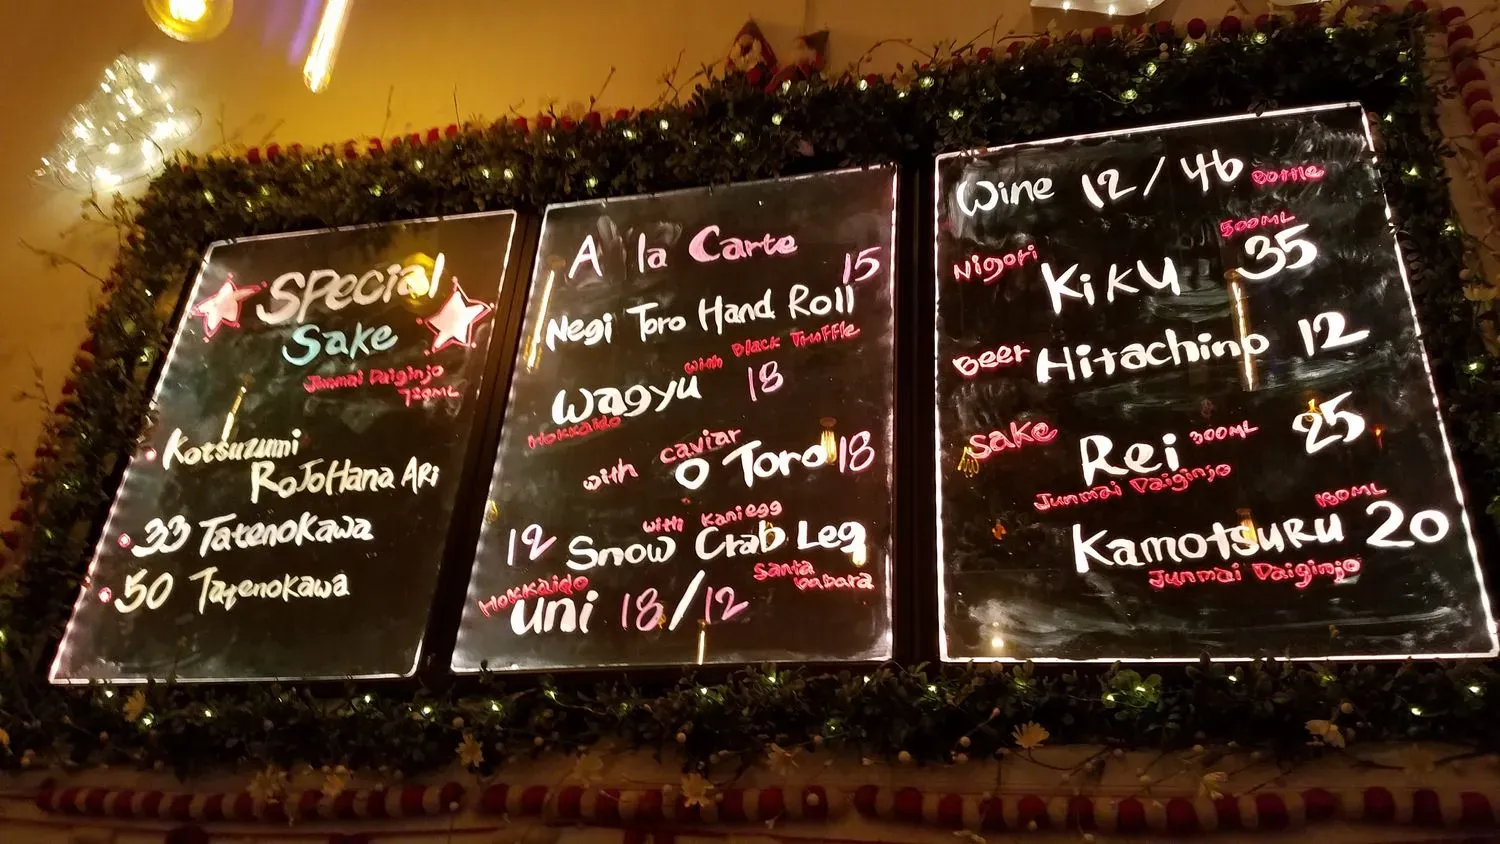 SPecial
Sake
Junmai Daiginjo
720ML
Kotsuzumi
RoJoHana ARi
33 Tatenokawa
50 Tatenokawa
A la Carte
15
Negi Toro Hand Roll
with Black Truffle
Wagyu 18
Hokkaido
with caviar
O Toro 18
with Kaniegg
12 Snow Crab Leg
Hokkaido Santa Barbara
uni 18/12
Wine 12/46 Bottle
500ML
Nigori Kiku 35
Beer Hitachino 12
Sake Rei 300ML 25
Junmai Daiginjo
180ML
Kamotsuru 20
Junmai Daiginjo